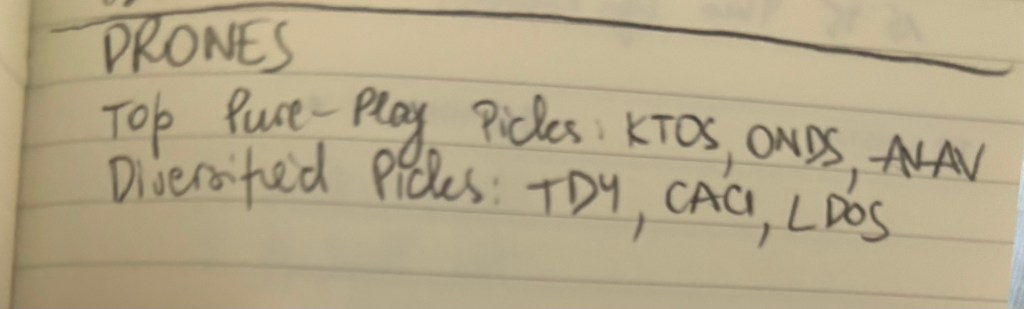 DRONES
Top Pure-Play Picks: KTOS, ONDS, AVAV
Diversified Picks: TDY, CACI, LDOS